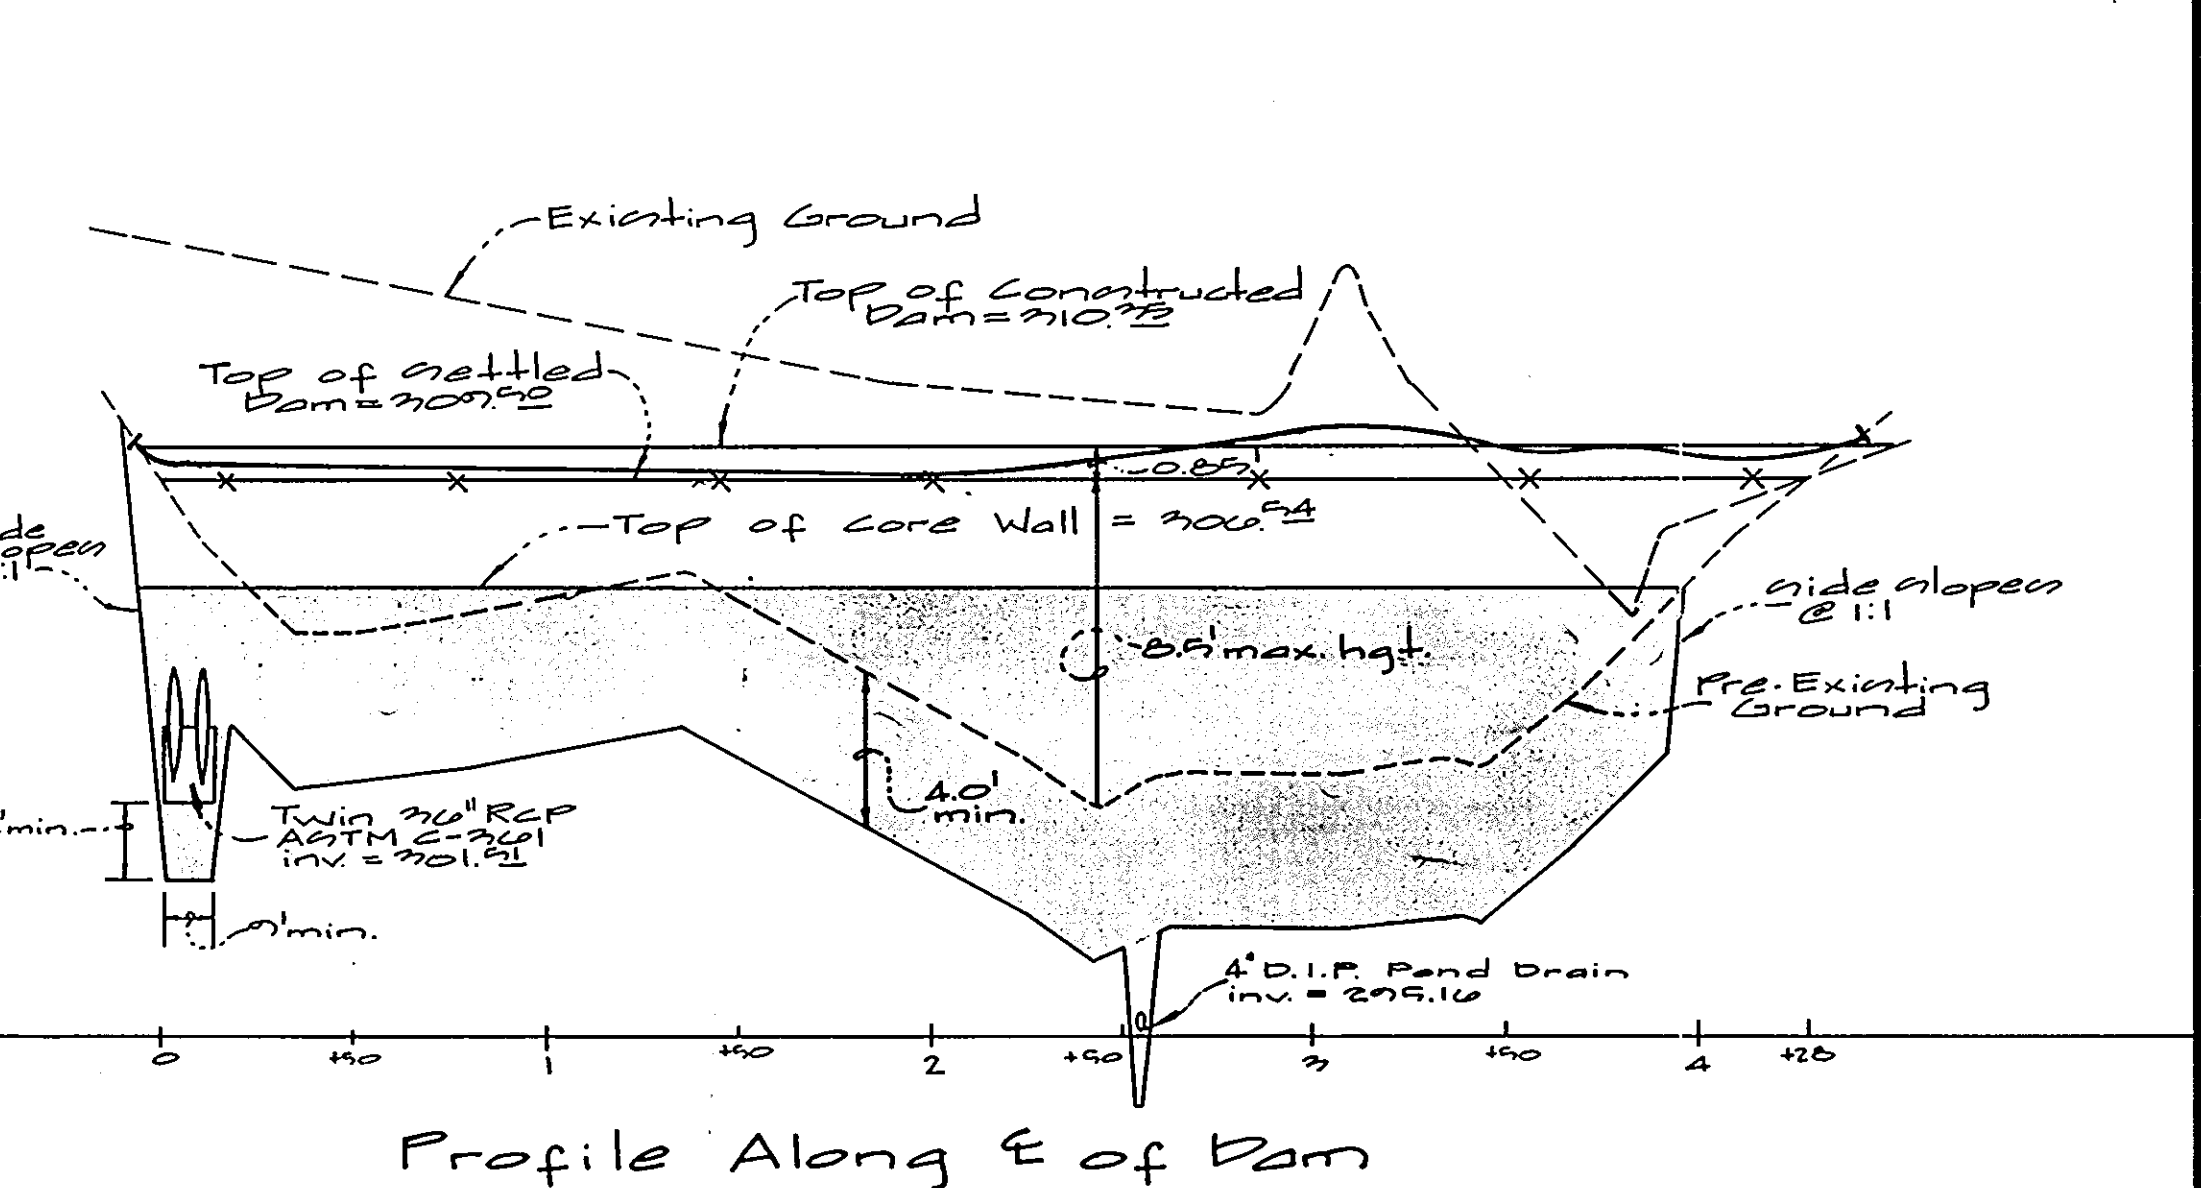 Existing Ground
Top of Constructed
Dam = 310.35
Top of Settled
Dam = 309.50
0.85'
Top of Core Wall = 306.54
Side Slopes
@ 1:1
8.5' max. hgt.
Pre-Existing
Ground
4.0'
min.
Twin 36" RCP
ASTM C-361
inv. = 301.51
min.
9' min.
4" D.I.P. Pond Drain
inv. = 295.16
0 +50 1 +50 2 +50 3 +50 4 +28
Profile Along ℄ of Dam